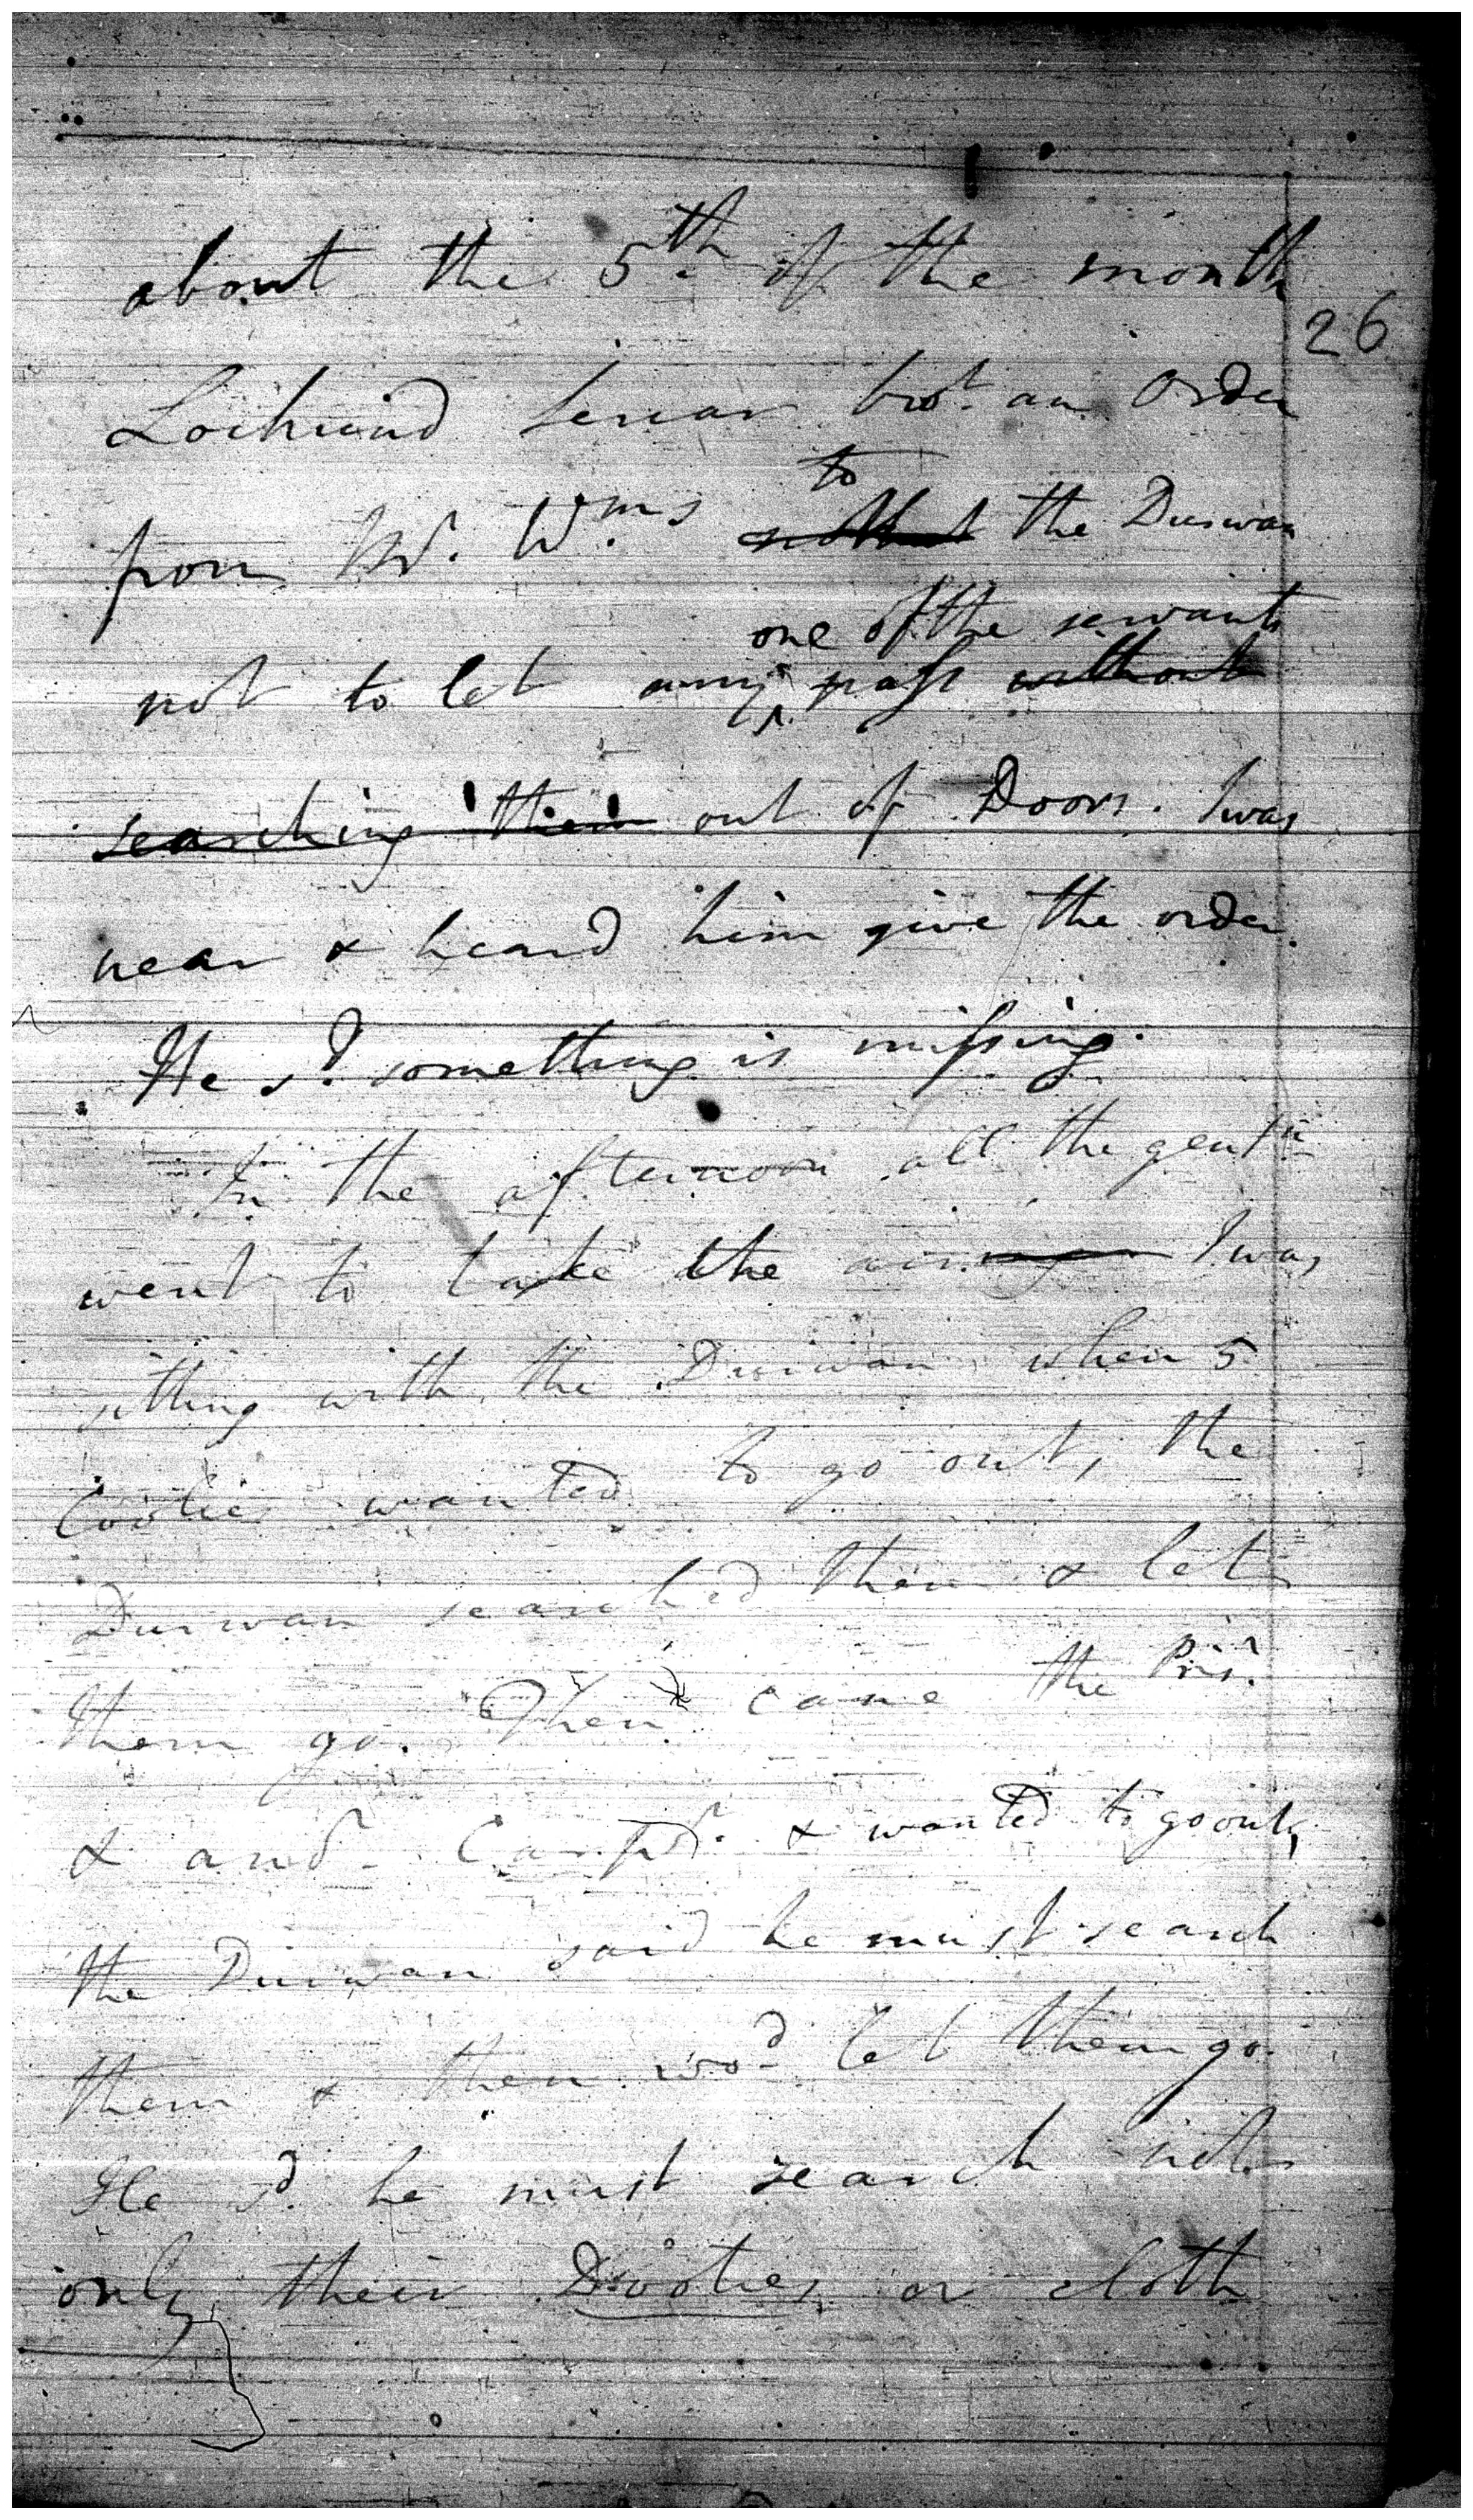 about the 5th of the month
26
Sircar brot. an Order
to
from Mr. Wms not that the Durwan
one of the servants
not to let any pass without
searching them out of Doors. I was
near & heard him give the order.
He sd. something is missing.
In the afternoon all the gentn
went to take the air I was
sitting with the Durwan when 5
Coolies wanted to go out, the
Durwan searched them & let
them go. Then came the Prisr.
& anor. Carpr. & wanted to go out,
the Durwan said he must search
them & then wod let them go.
He sd. he must search not
only their Dooties or cloth